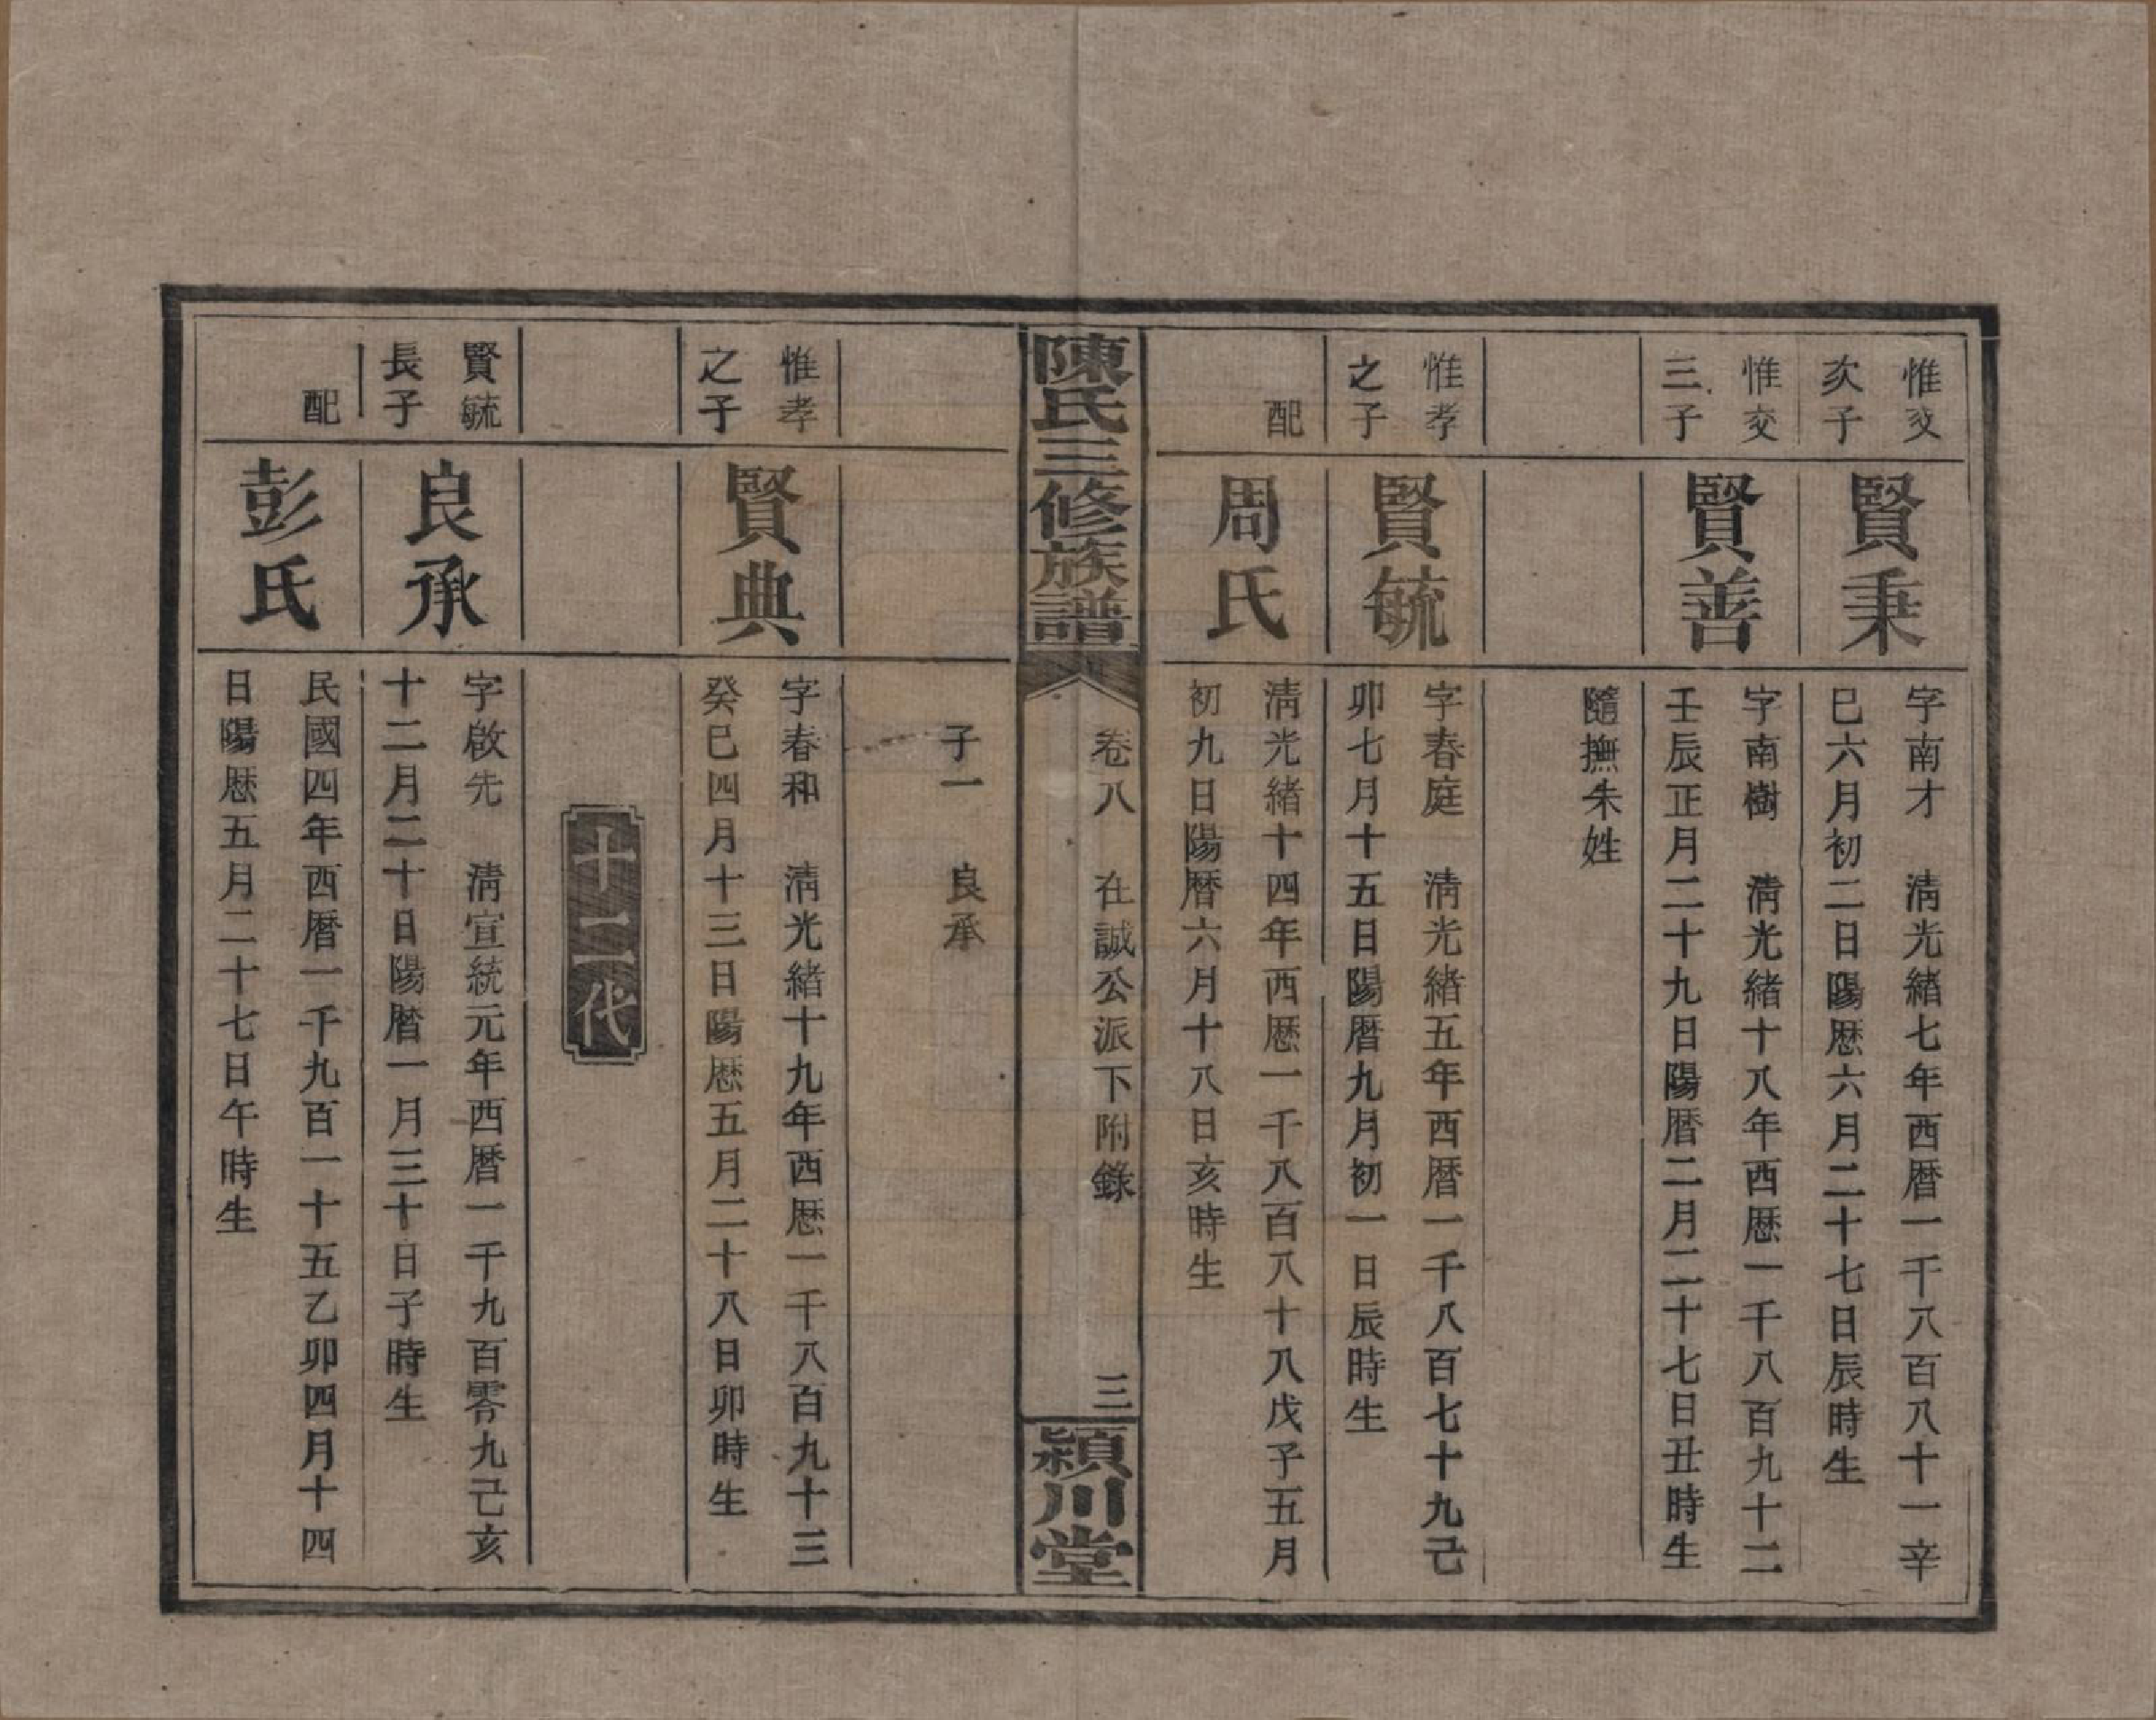 惟交
次子
賢秉
字南才　清光緒七年西暦一千八百八十一辛
巳六月初二日陽歷六月二十七日辰時生
惟交
三子
賢善
字南樹　清光緒十八年西歷一千八百九十二
壬辰正月二十九日陽暦二月二十七日丑時生
隨撫朱姓
惟孝
之子
賢毓
字春庭　清光緒五年西暦一千八百七十九己
卯七月十五日陽暦九月初一日辰時生
配
周氏
清光緒十四年西歷一千八百八十八戊子五月
初九日陽暦六月十八日亥時生
陳氏三修族譜
卷八　在誠公派下附錄
三
潁川堂
子一　良承
惟孝
之子
賢典
字春和　清光緒十九年西歷一千八百九十三
癸巳四月十三日陽歷五月二十八日卯時生
十二代
賢毓
長子
良承
字啟先　清宣統元年西暦一千九百零九己亥
十二月二十日陽暦一月三十日子時生
配
彭氏
民國四年西暦一千九百一十五乙卯四月十四
日陽歷五月二十七日午時生